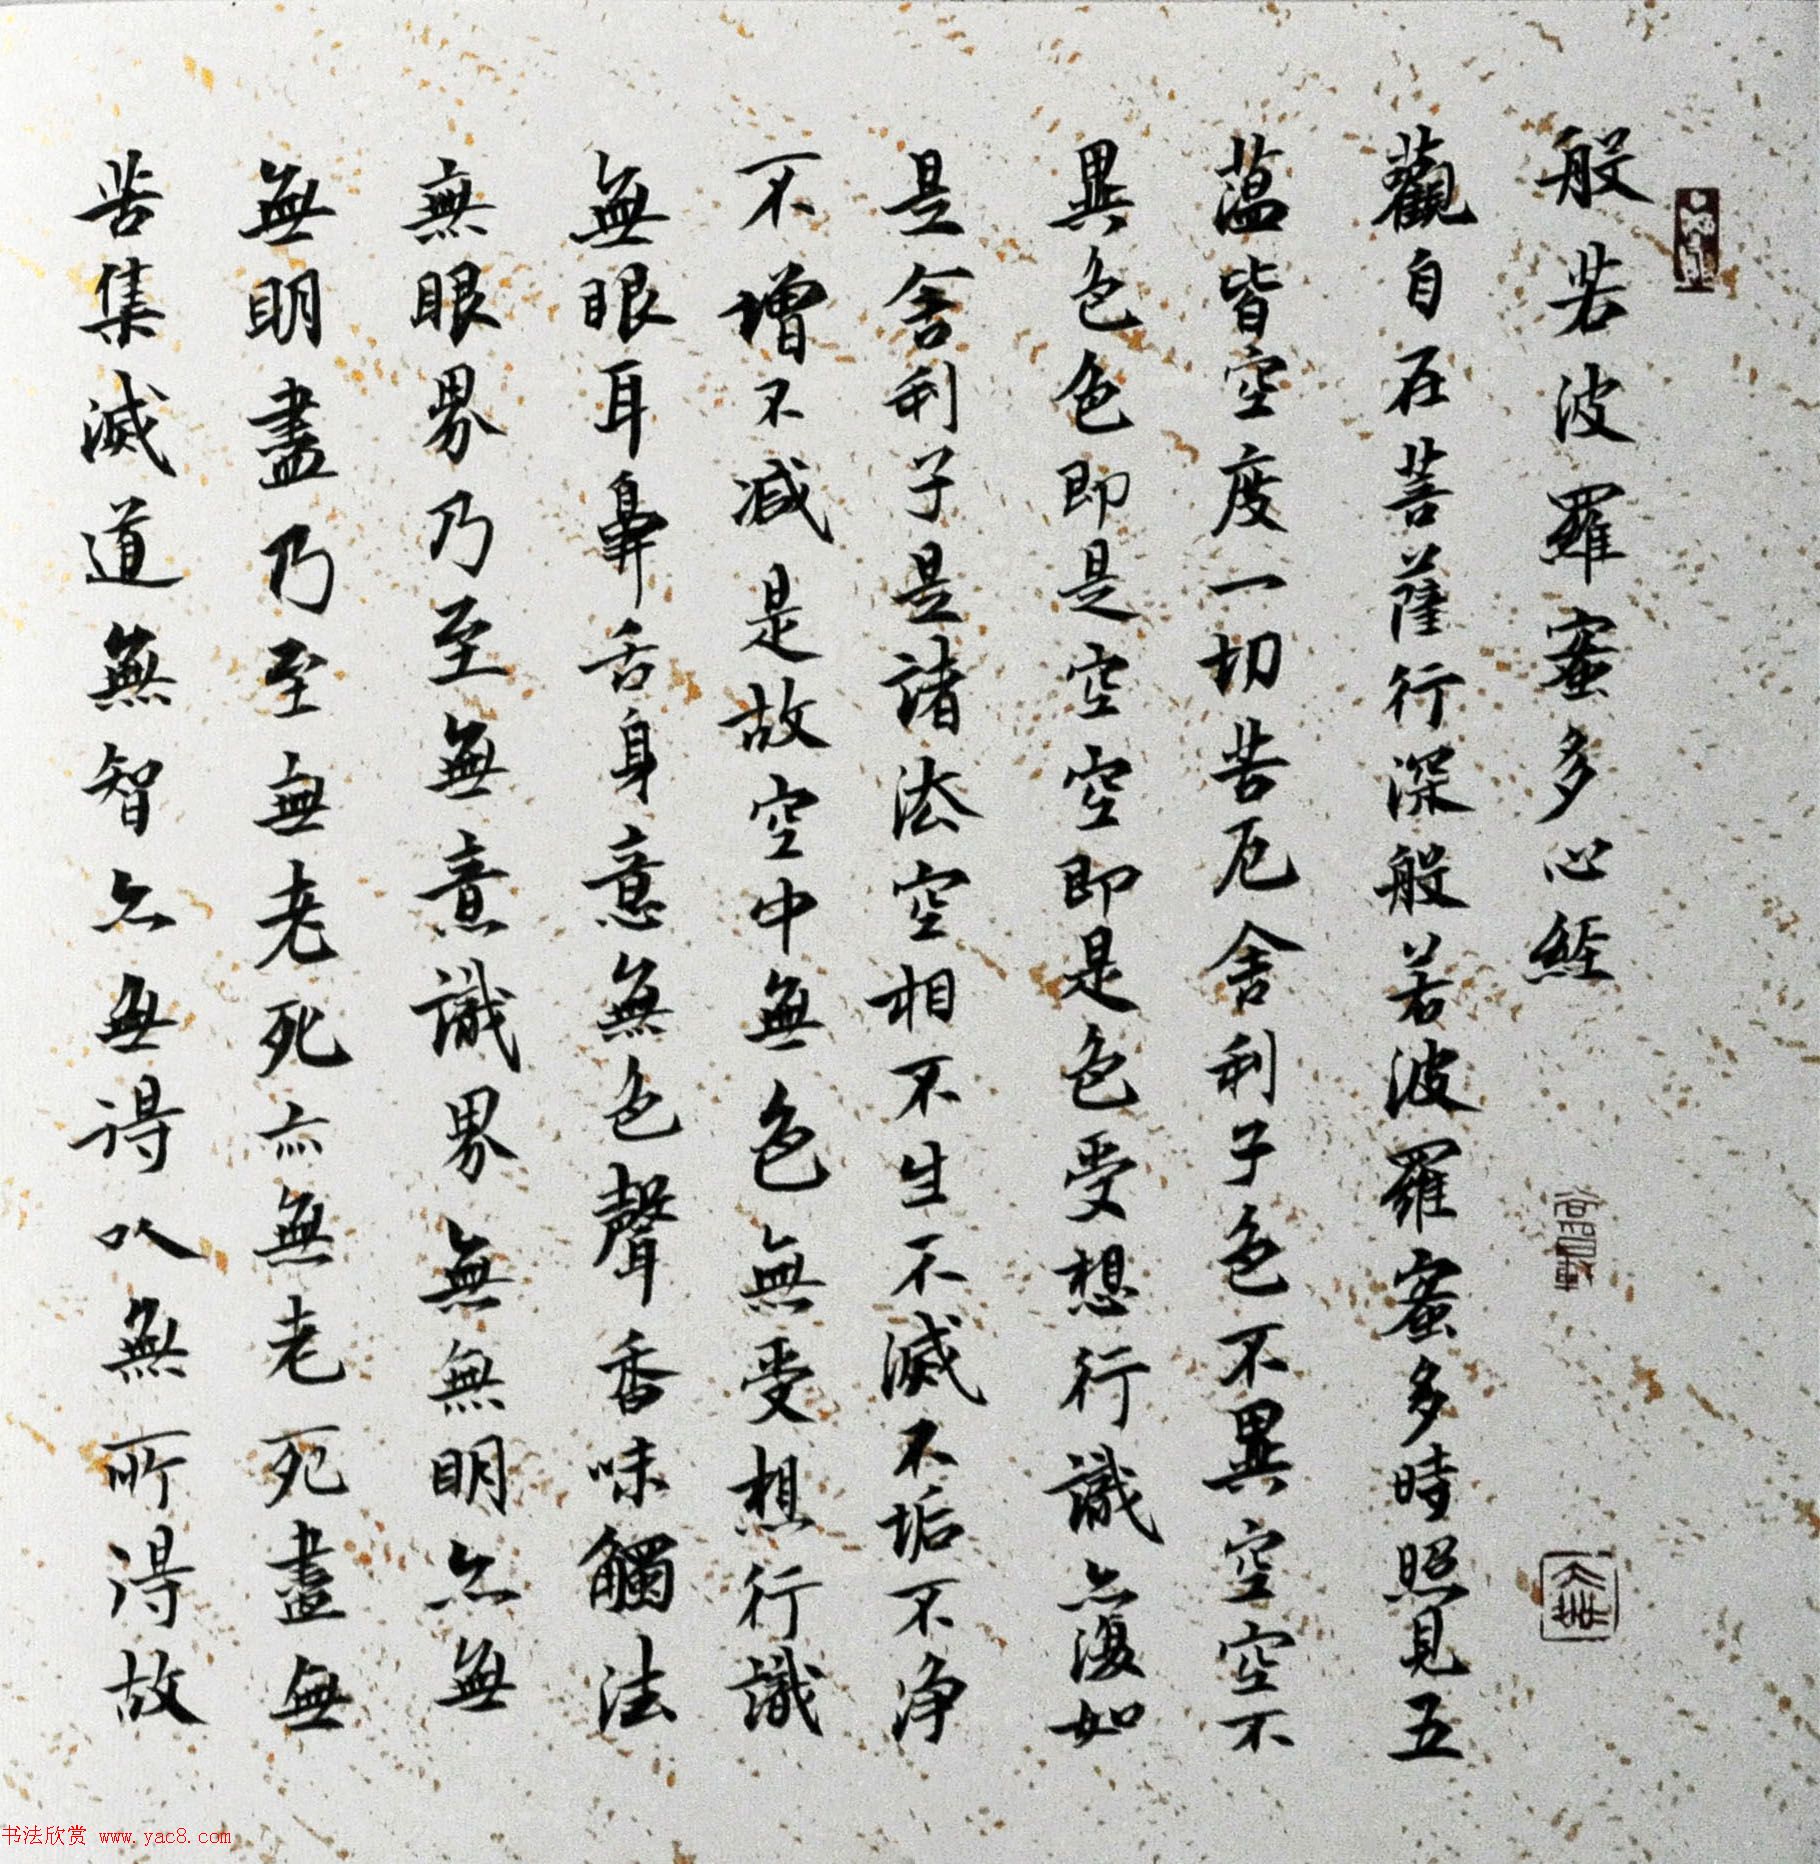 般若波羅蜜多心経
觀自在菩薩行深般若波羅蜜多時照見五
蕰皆空度一切苦厄舍利子色不異空空不
異色色即是空空即是色受想行識亦復如
是舍利子是諸法空相不生不滅不垢不净
不增不减是故空中無色無受想行識
無眼耳鼻舌身意無色聲香味觸法
無眼界乃至無意識界無無明亦無
無明盡乃至無老死亦無老死盡無
苦集滅道無智亦無得以無所得故
书法欣赏 www.yac8.com